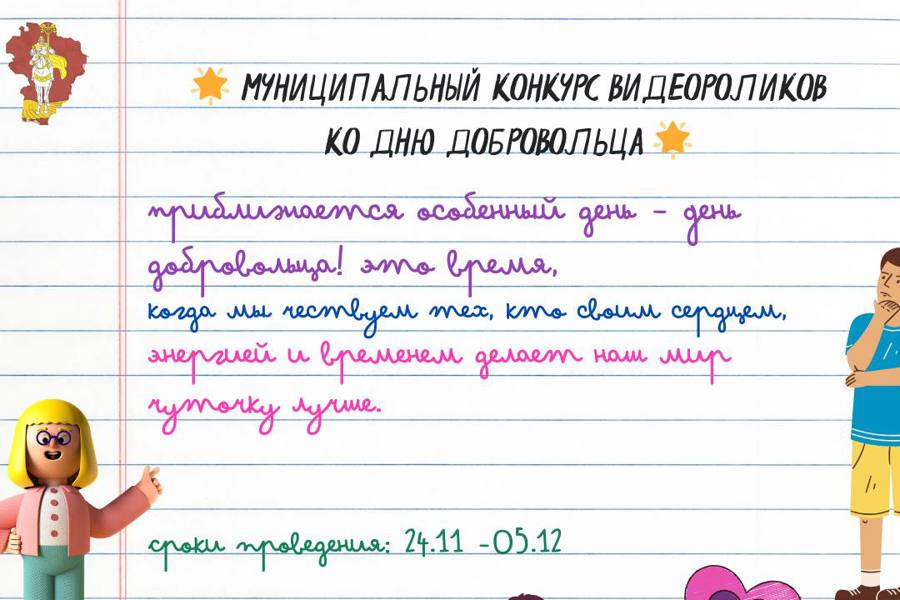 МУНИЦИПАЛЬНЫЙ КОНКУРС ВИДЕОРОЛИКОВ
КО ДНЮ ДОБРОВОЛЬЦА
приближается особенный день - день
добровольца! это время,
когда мы чествуем тех, кто своим сердцем,
энергией и временем делает наш мир
чуточку лучше.
сроки проведения: 24.11 -05.12